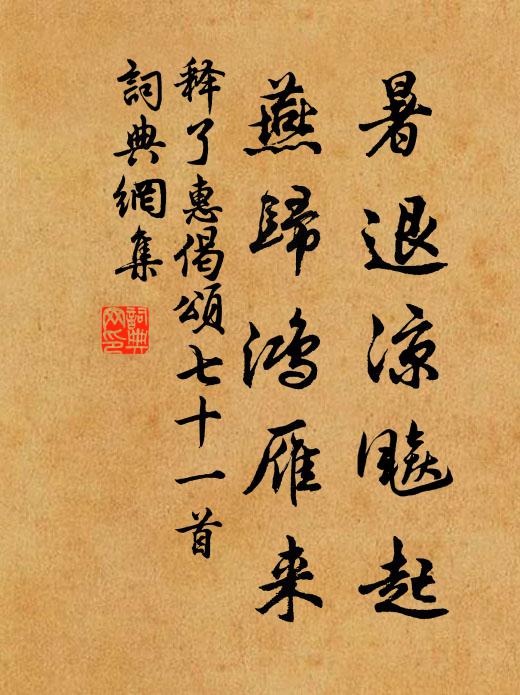 暑退涼飈起
燕歸鴻雁来
释了惠偈頌七十一首
詞典網集
詞典網印